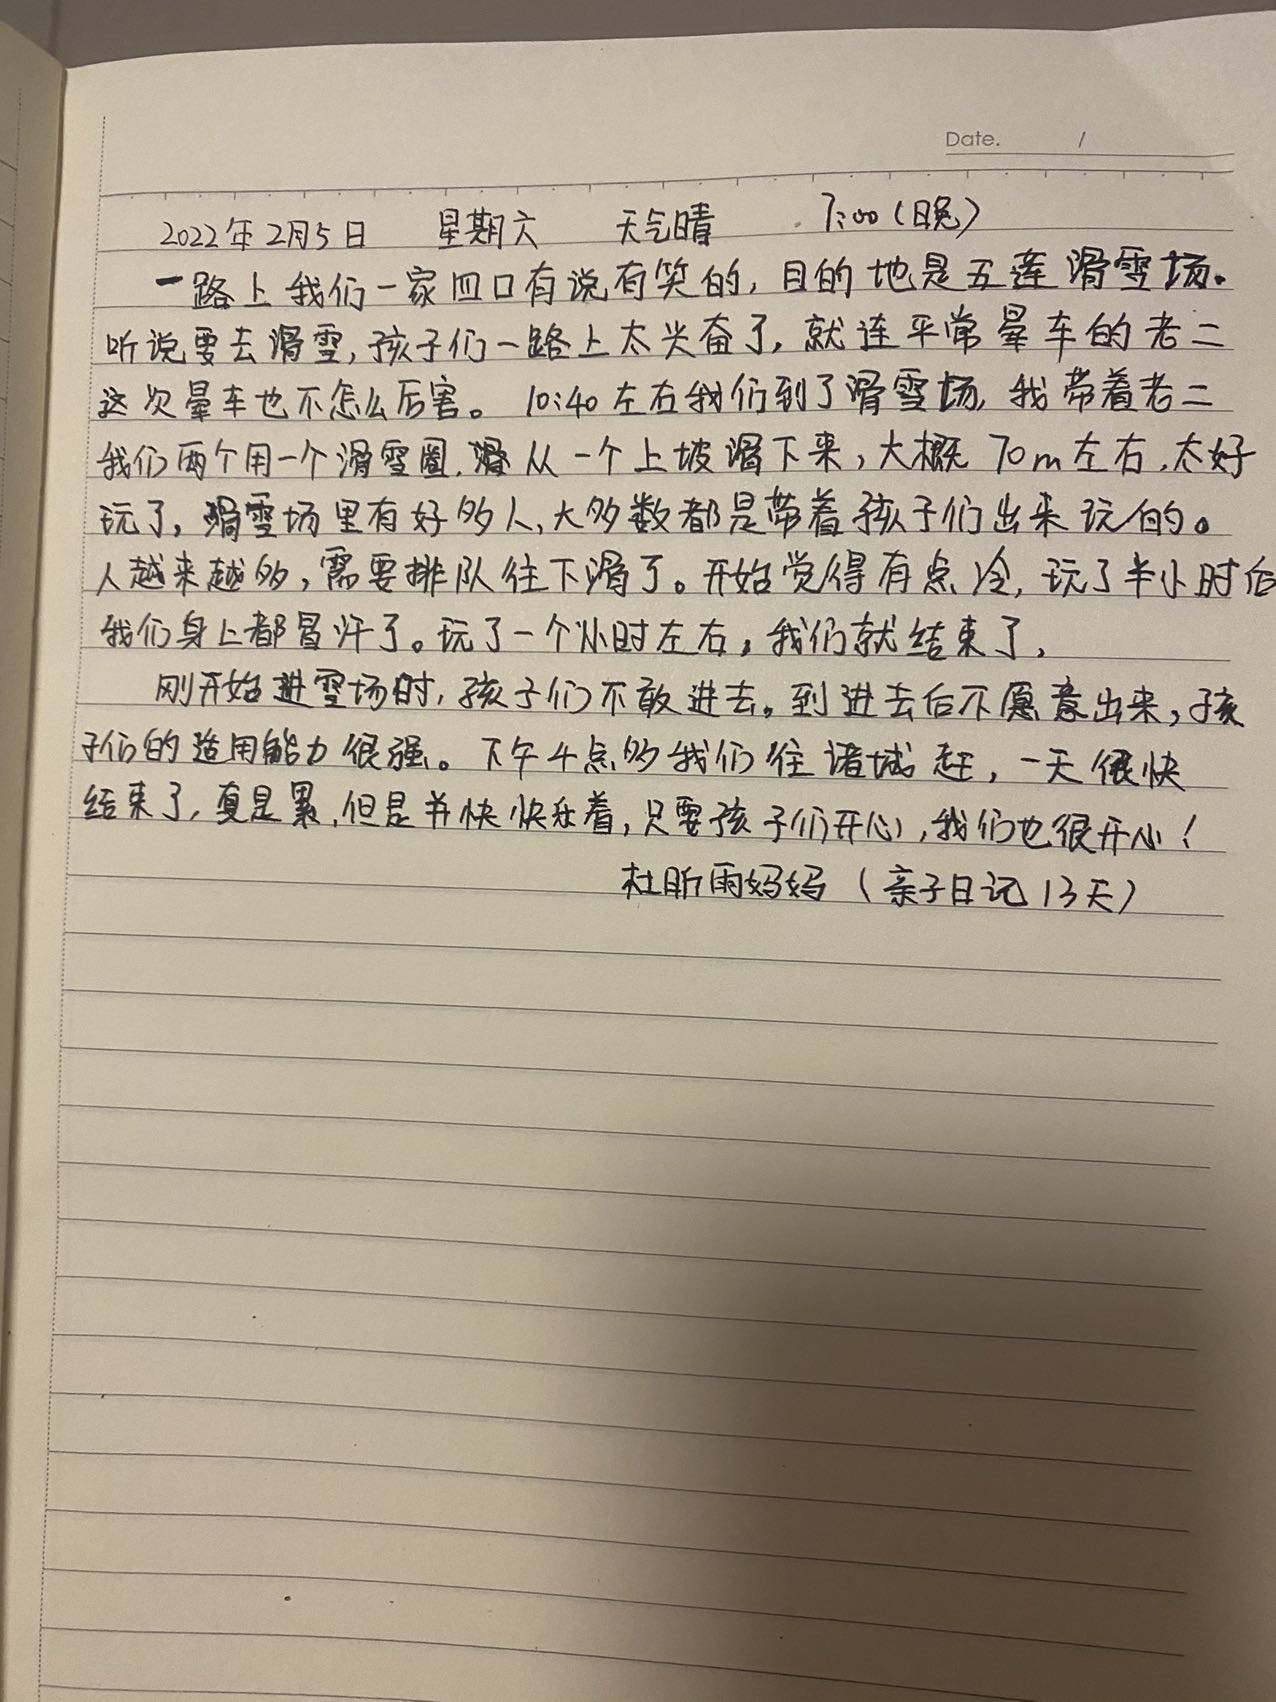 Date. /
2022年2月5日 星期六 天气晴 7:00(晚)
一路上我们一家四口有说有笑的,目的地是五莲滑雪场。
听说要去滑雪,孩子们一路上太兴奋了,就连平常晕车的老二
这次晕车也不怎么厉害。10:40左右我们到了滑雪场,我带着老二
我们两个用一个滑雪圈,从一个上坡滑下来,大概70m左右,太好
玩了,滑雪场里有好多人,大多数都是带着孩子们出来玩的。
人越来越多,需要排队往下滑了。开始觉得有点冷,玩了半小时后
我们身上都冒汗了。玩了一个小时左右,我们就结束了,
刚开始进雪场时,孩子们不敢进去,到进去后不愿意出来,孩
子们的适用能力很强。下午4点多我们往诸城赶,一天很快
结束了,真是累,但是并快快乐着,只要孩子们开心,我们也很开心!
杜昕雨妈妈(亲子日记13天)